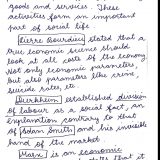 goods and services. These
activities form an important
part of social life.
Pierre Bourdieu stated that a
true economic science should
look at all costs of the economy
Not only economic parameters
but also parameters like crime,
suicide rates, etc.
Durkheim established division
of labour as a social fact, an
explanation contrary to that
of Adam Smith and his invisible
hand of the market.
Marx is an economic